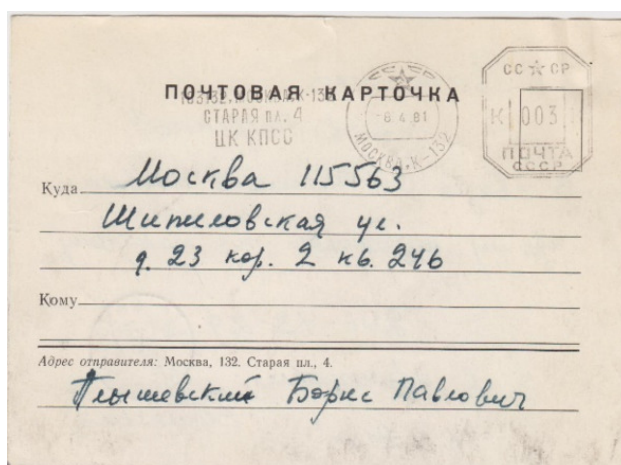 ПОЧТОВАЯ КАРТОЧКА
103132, МОСКВА, К-132
СТАРАЯ пл. 4
ЦК КПСС
-6.4.81
МОСКВА, К-132
СС СР
К 003
ПОЧТА
СССР
Куда Москва 115563
Шипиловская ул.
д. 23 кор. 2 кв. 246
Кому
Адрес отправителя: Москва, 132. Старая пл., 4.
Плышевский Борис Павлович